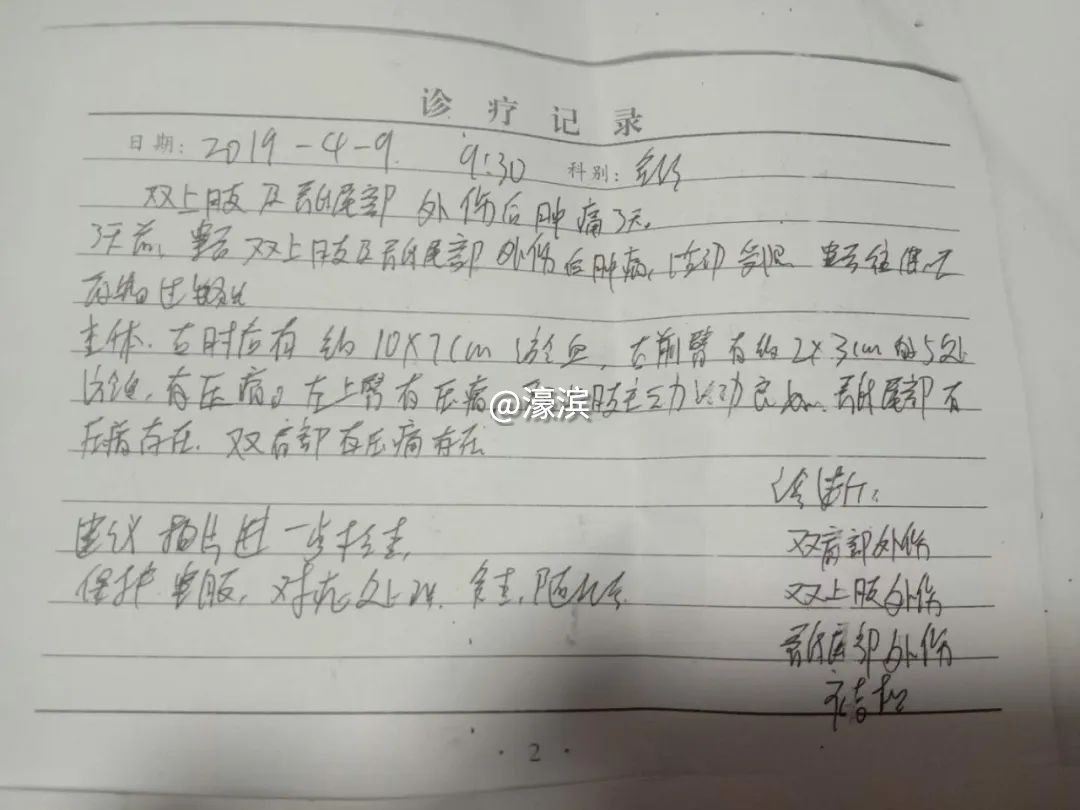 诊疗记录
日期: 2019-4-9. 9:30 科别:
双上肢及骶尾部 外伤后肿痛3天。
3天前, 患者双上肢及骶尾部外伤后肿痛, 活动受限
查体. 右肘后有约10×7cm淤血, 右前臂有约2×3cm的5处
淤血, 有压痛。左上臂有压痛 肢主动活动良好. 骶尾部有
压痛存在. 双肩部有压痛存在
@濠滨
诊断:
建议拍片进一步检查,
双肩部外伤
保护患肢, 对症处理. 复查, 随诊
双上肢外伤
骶尾部外伤
· 2 ·